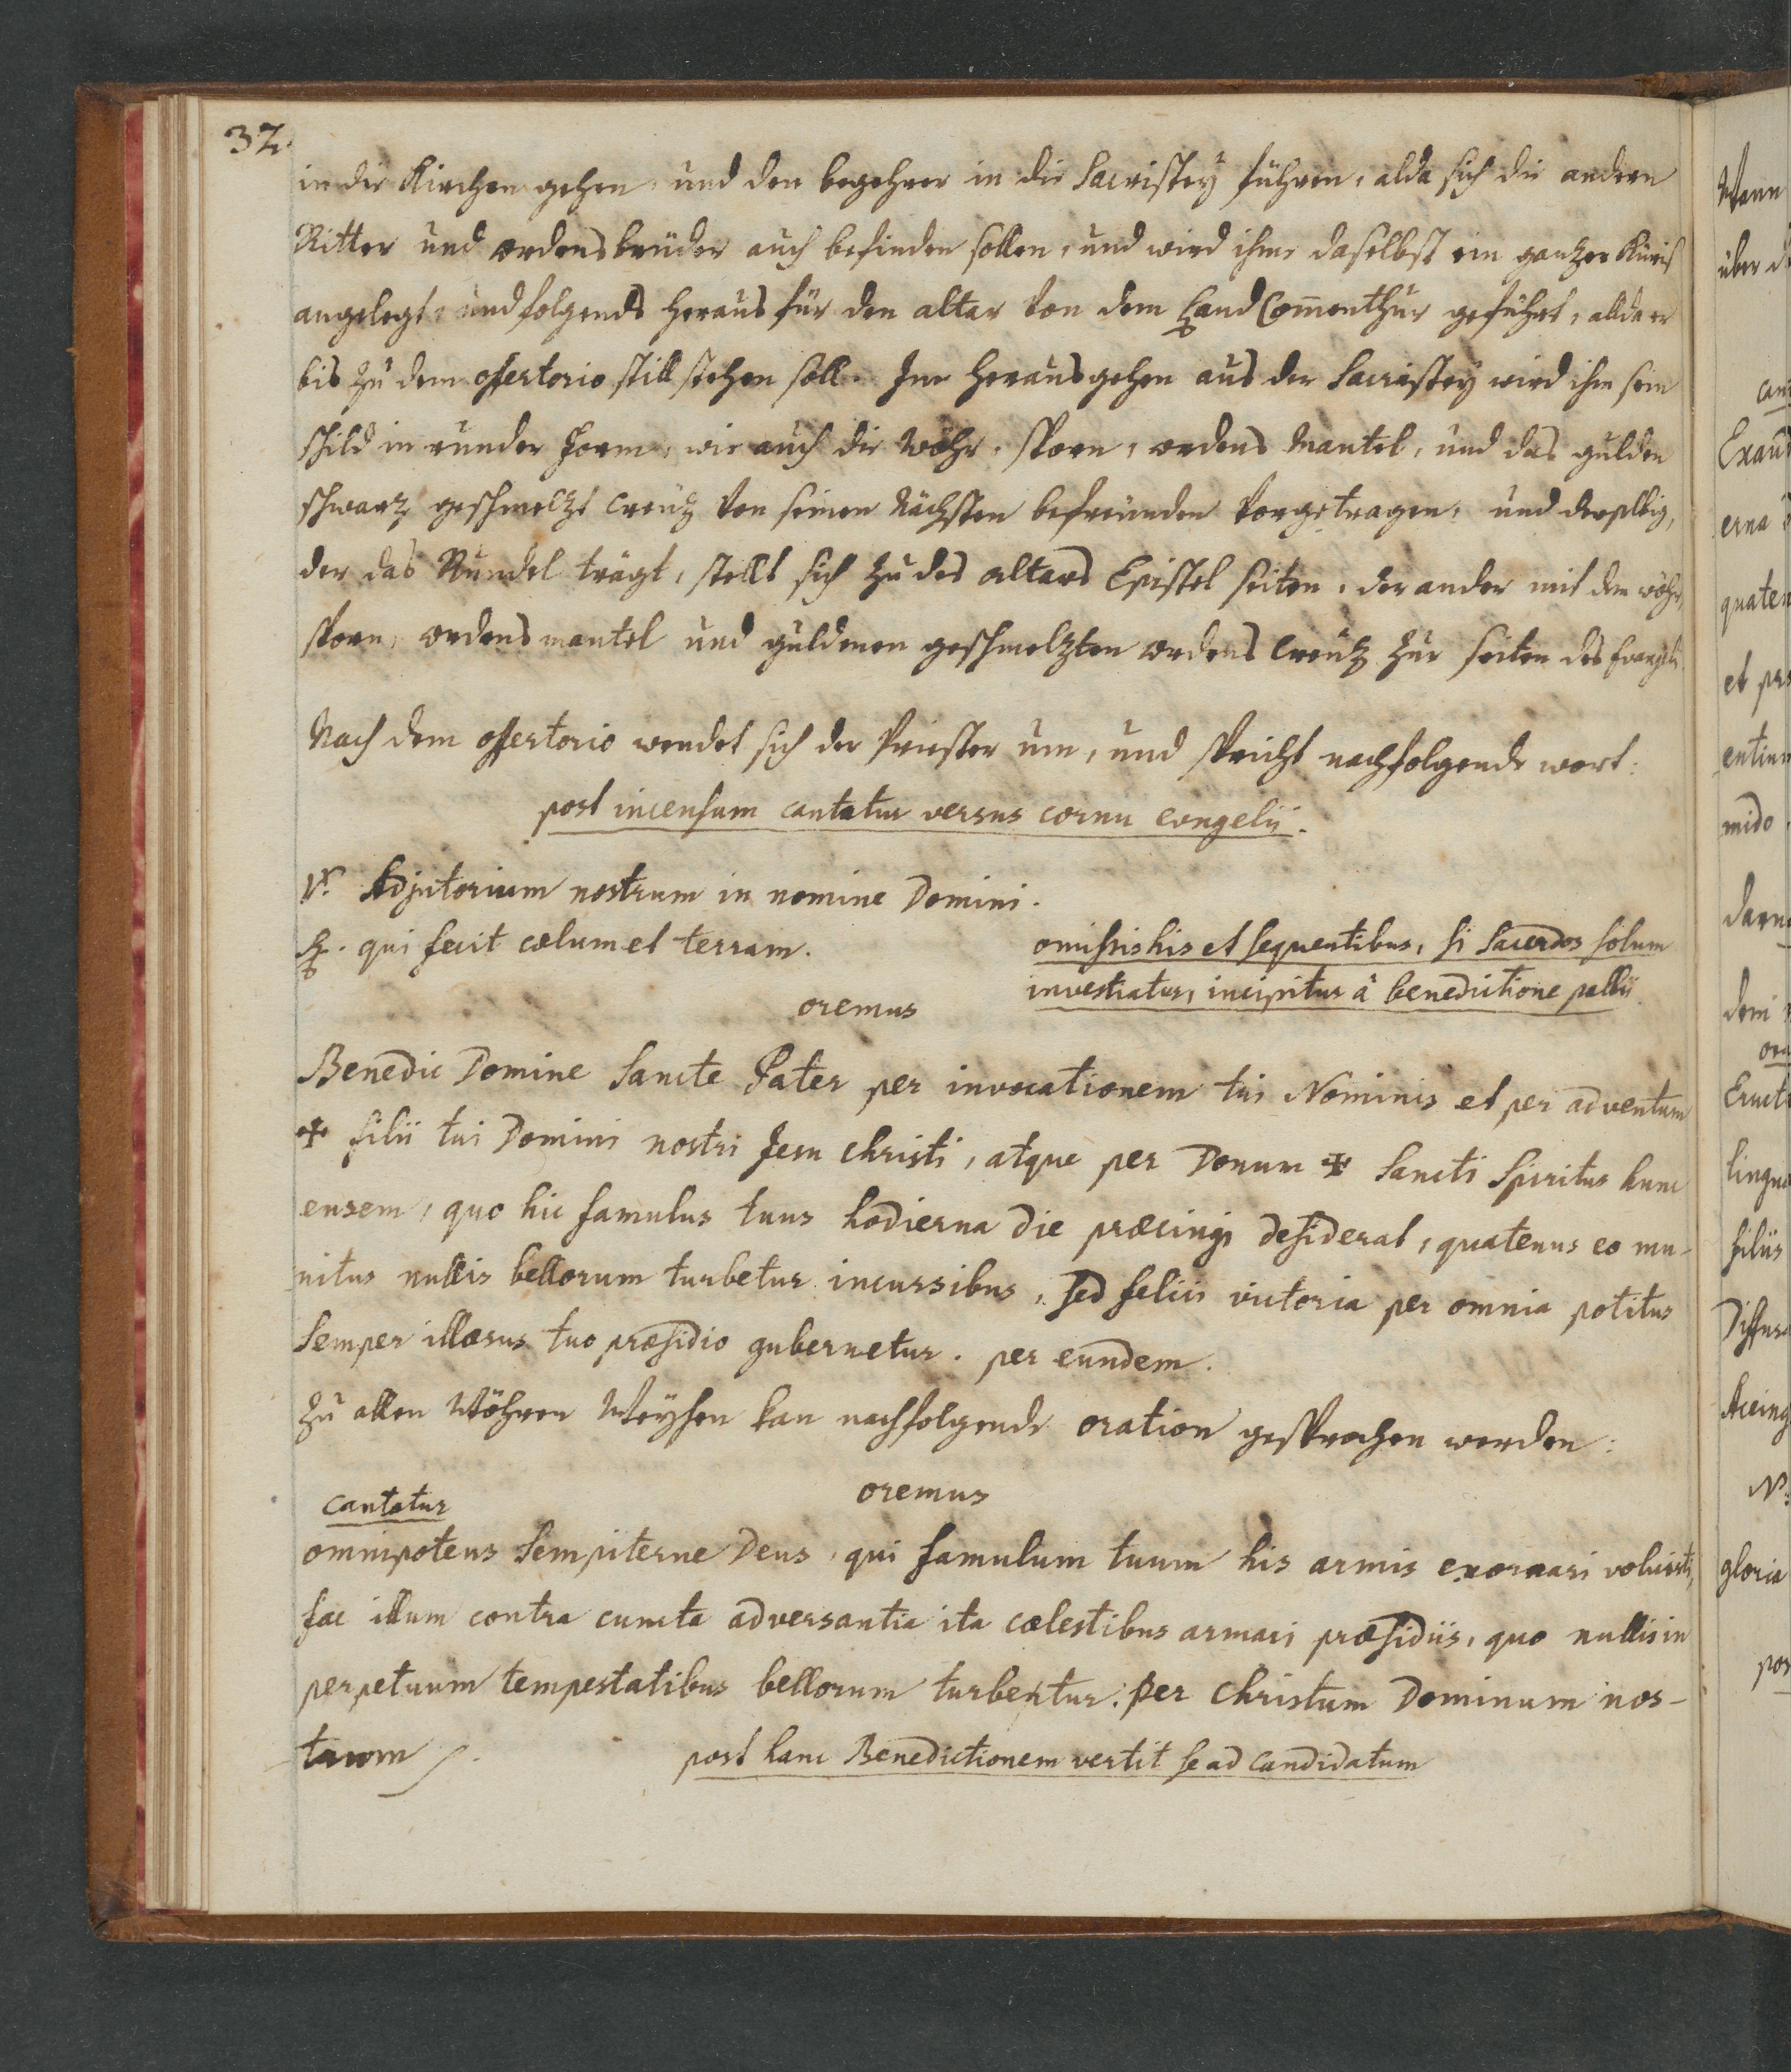 32.
in die Kirchen gehen, und den begehrer in die Sacristey führen, alda sich die andern
Ritter und ordensbrüder auch befinden sollen, und wird ihme daselbst ein ganzer Küris
angelegt, und folgends heraus für den altar von dem Land Com̄enthur geführt, allda er
bis zu dem offertorio still stehen soll. Im herausgehen aus der Sacristey wird ihm sein
schild in runder form, wie auch die Wöhr, sporn, ordens Mantel, und das gulden
schwarz geschmelzt Creuz von seinen Nächsten befreünden vorgetragen, und derselbig,
der das Rundel trägt, stellt sich zu des altars Epistel seiten, der ander mit dem wöhr,
sporn, ordens mantel und guldenen geschmelzten ordens Creuz zur seiten des Evangelii
Nach dem offertorio wendet sich der Priester um, und spricht nachfolgende wort:
post incensum cantatur versus cornu evngelii.
V. Adjutorium nostrum in nomine Domini.
R. qui fecit cœlum et terram.
omissis his et sequentibus, si Sacerdos solum
investiatur, incipitur à benedictione pallii
oremus
Benedic Domine Sancte Pater per invocationem tui Nominis et per adventum
✠ filii tui Domini nostri Jesu Christi, atque per Donum ✠ Sancti Spiritus hunc
ensem, quo hic famulus tuus hodierna die præcingi desiderat, quatenus eo mu-
nitus nullis bellorum turbetur incursibus, sed felici victoria per omnia potitus
Semper illæsus tuo præsidio gubernetur. per eundem.
zu allen Wöhren Weyhen kan nachfolgende oration gesprochen werden:
cantatur
oremus
omnipotens Sempiterne Deus, qui famulum tuum his armis exornari voluisti,
fac illum contra cuncta adversantia ita cœlestibus armari præsidiis, quo nullis in
perpetuum tempestatibus bellorum turbentur: per Christum Dominum nos-
trum
post hanc Benedictionem vertit se ad candidatum
Wann
über d
can
Exaud
erna
quaten
et pro
entium
mido
darna
dem
Eruct
lingua
filiis
Diffusa
Accing
gloria
pos